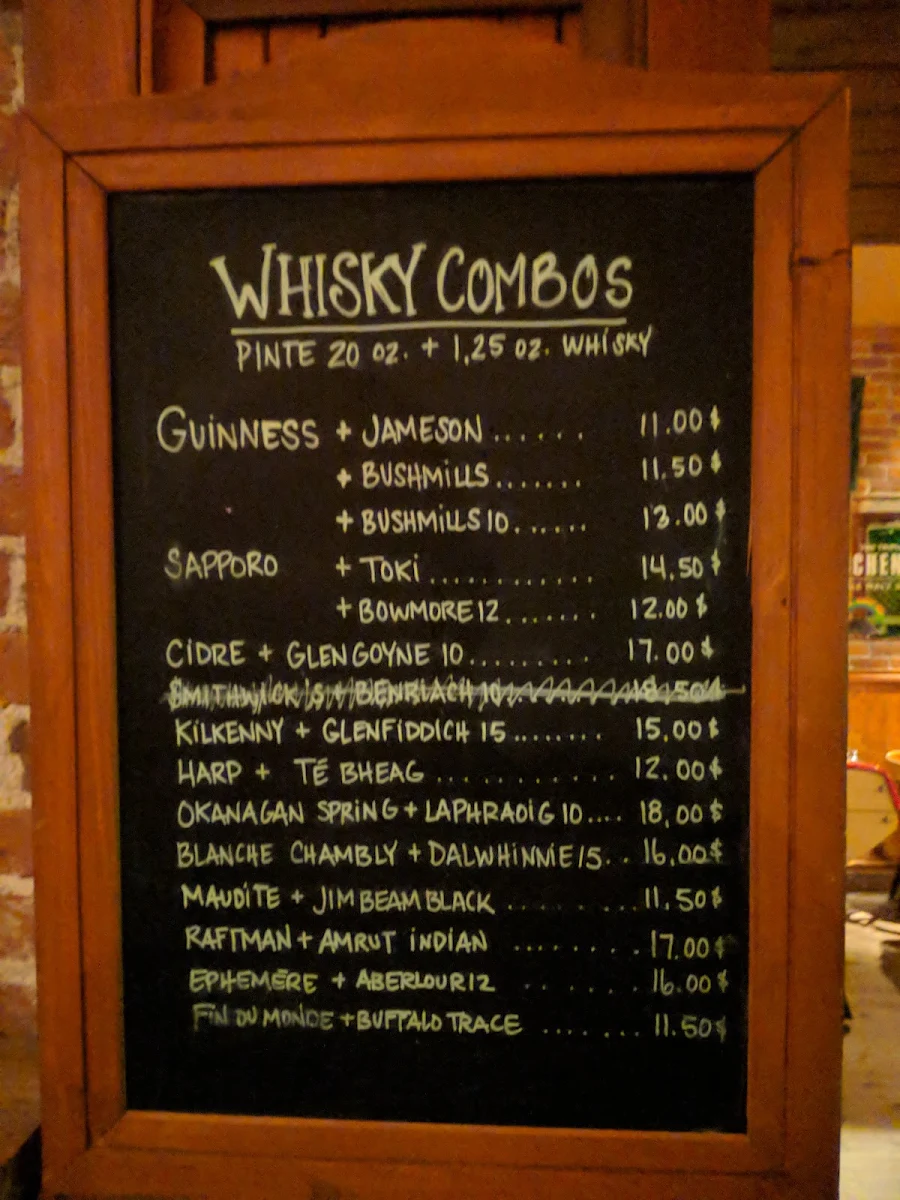 WHISKY COMBOS
PINTE 20 OZ. + 1,25 OZ. WHISKY
GUINNESS + JAMESON ...... 11.00$
+ BUSHMILLS ....... 11.50$
+ BUSHMILLS 10 ...... 13.00$
SAPPORO + TOKI ............ 14.50$
+ BOWMORE 12 ....... 12.00$
CIDRE + GLENGOYNE 10 ......... 17.00$
SMITHWICK'S + BENRIACH 10 18.50$
KILKENNY + GLENFIDDICH 15 ........ 15.00$
HARP + TÉ BHEAG ........... 12.00$
OKANAGAN SPRING + LAPHRAOIG 10 .... 18,00$
BLANCHE CHAMBLY + DALWHINNIE 15 .. 16.00$
MAUDITE + JIM BEAM BLACK ......... 11.50$
RAFTMAN + AMRUT INDIAN ........ 17.00$
EPHEMÈRE + ABERLOUR 12 ....... 16.00$
FIN DU MONDE + BUFFALO TRACE ....... 11.50$